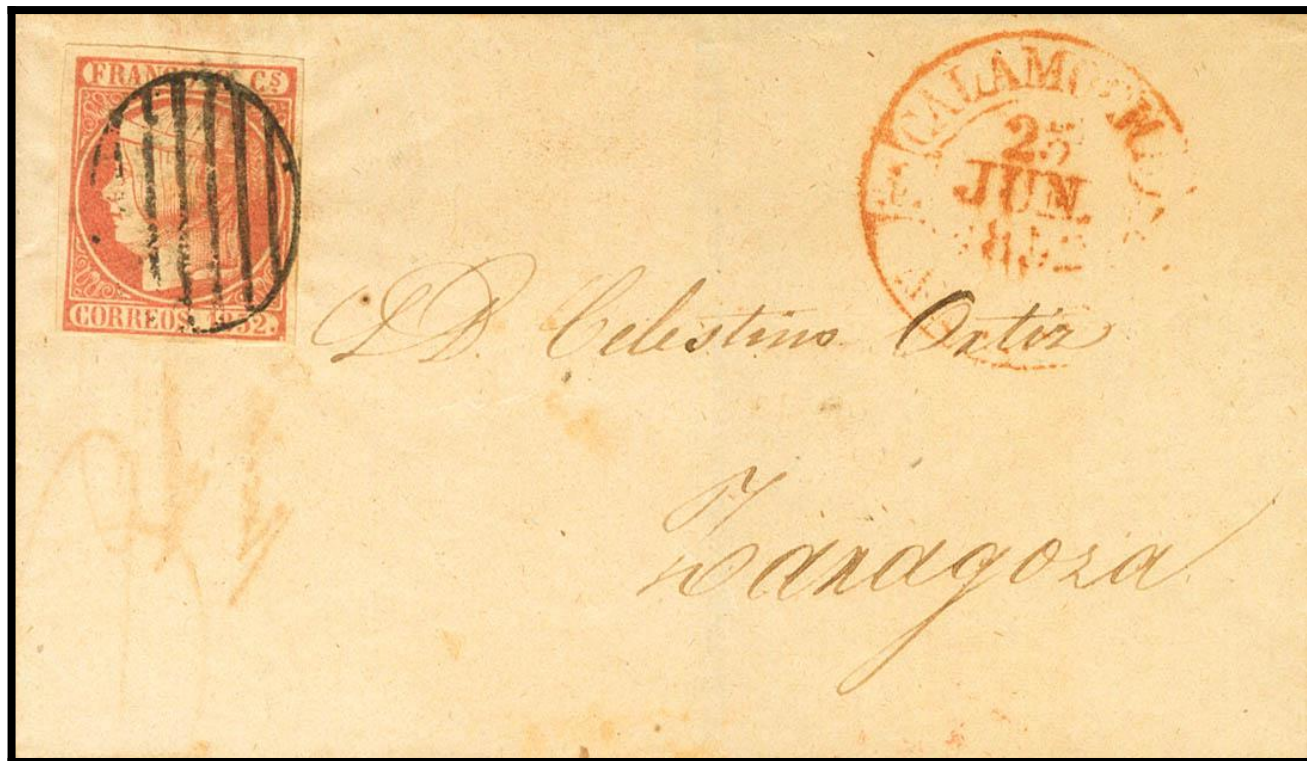 FRANCO Cs
CORREOS 1852.
CALAMOCHA
25
JUN.
1852
Celestino Ortiz
Zaragoza